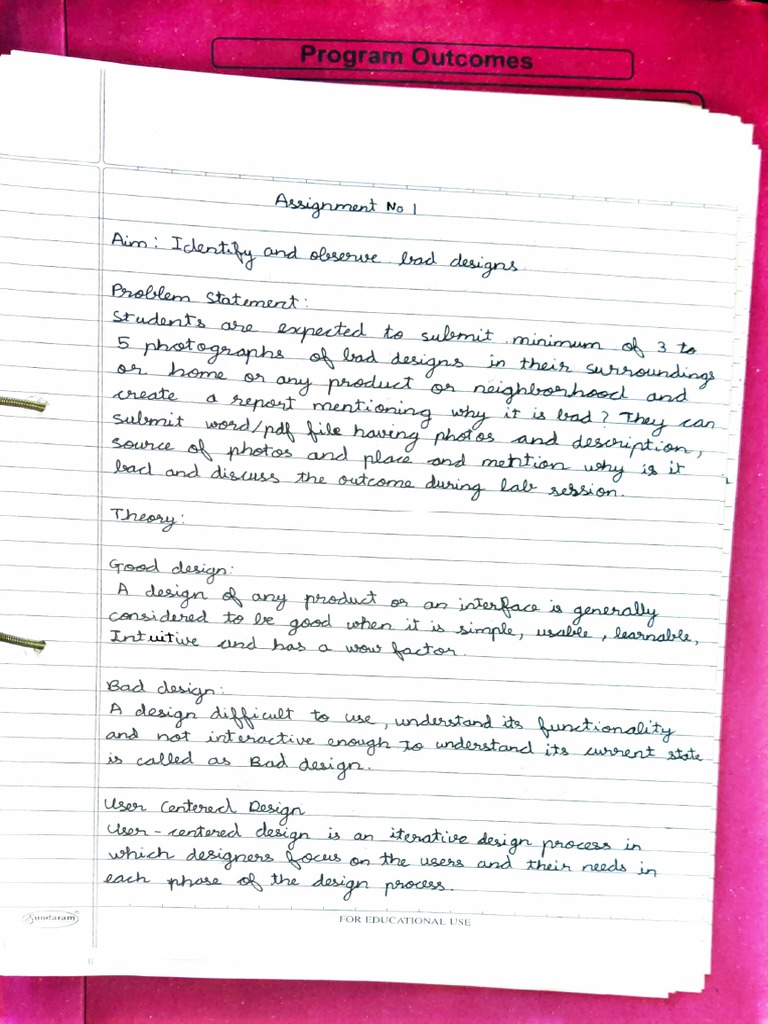 Program Outcomes
Assignment No 1
Aim: Identify and observe bad designs.
Problem Statement:
Students are expected to submit minimum of 3 to
5 photographs of bad designs in their surroundings
or home or any product or neighborhood and
create a report mentioning why it is bad? They can
submit word/pdf file having photos and description,
source of photos and place and mention why is it
bad and discuss the outcome during lab session.
Theory:
Good design:
A design of any product or an interface is generally
considered to be good when it is simple, usable, learnable,
Intuitive and has a wow factor.
Bad design:
A design difficult to use, understand its functionality
and not interactive enough to understand its current state
is called as Bad design.
User Centered Design
User-centered design is an iterative design process in
which designers focus on the users and their needs in
each phase of the design process.
Sundaram
FOR EDUCATIONAL USE